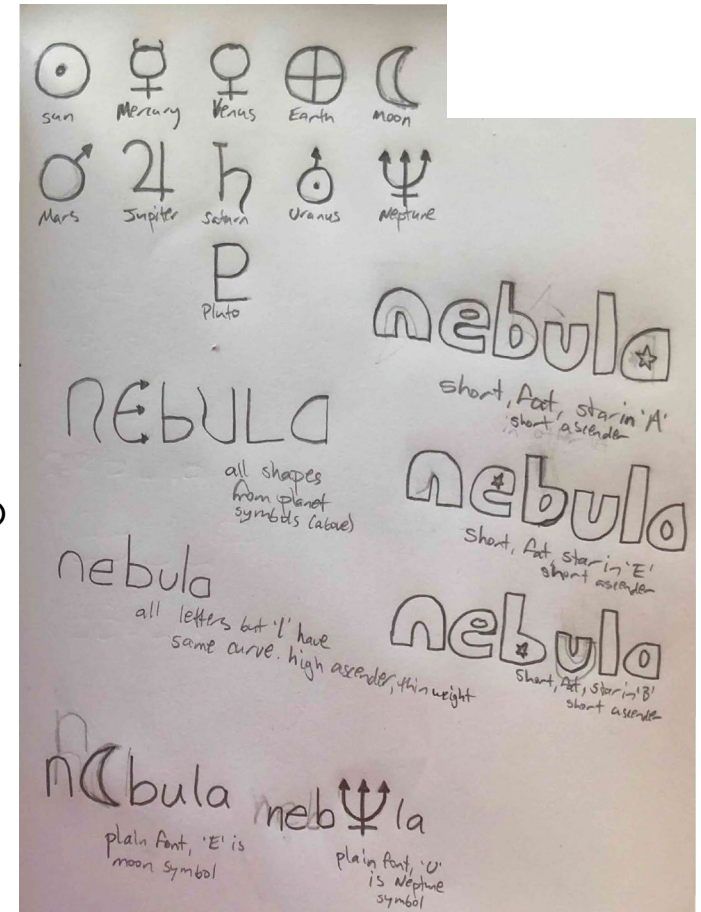 sun Mercury Venus Earth Moon
Mars Jupiter Saturn Uranus Neptune
Pluto
nebula
short, fat, star in 'A'
short ascender
NEBULA
all shapes
from planet
symbols (above)
nebula
short, fat, star in 'E'
short ascender
nebula
all letters but 'l' have
same curve. high ascender, thin weight
nebula
short, fat, star in 'B'
short ascender
n☾bula
plain font, 'E' is
moon symbol
neb♆la
plain font, 'U'
is Neptune
symbol